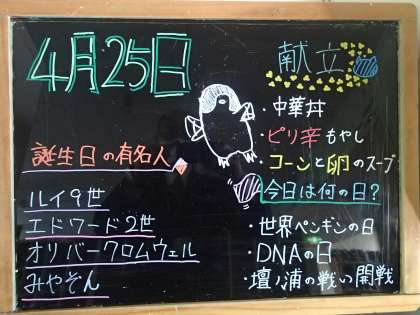 4月25日
誕生日の有名人
ルイ9世
エドワード2世
オリバークロムウェル
みやぞん
献立
・中華丼
・ピリ辛もやし
・コーンと卵のスープ
今日は何の日?
・世界ペンギンの日
・DNAの日
・壇ノ浦の戦い開戦